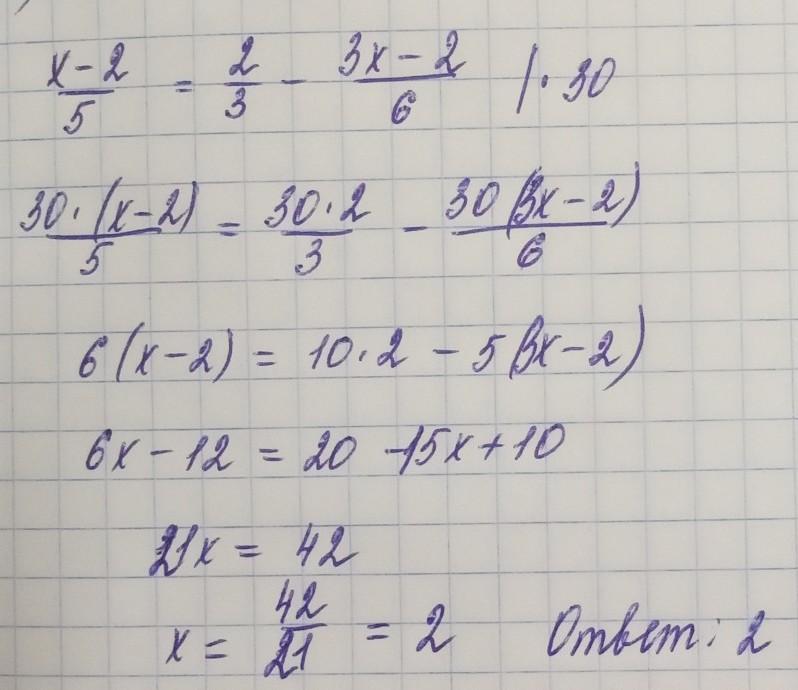 x-2/5 = 2/3 - 3x-2/6 |·30
30·(x-2)/5 = 30·2/3 - 30(3x-2)/6
6(x-2) = 10·2 - 5(3x-2)
6x-12 = 20 -15x+10
21x = 42
x = 42/21 = 2 Ответ: 2